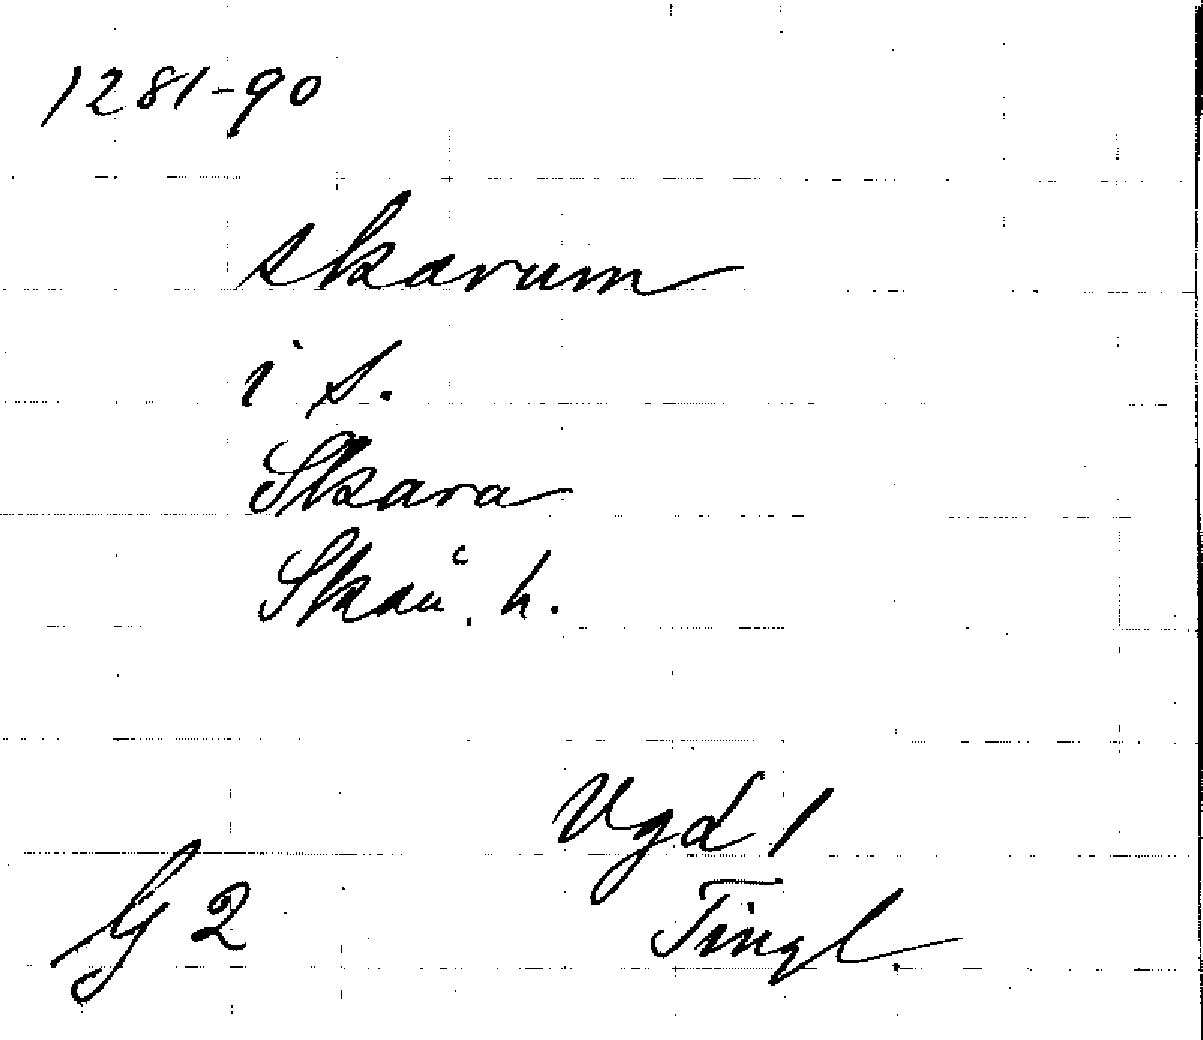 1281-90
skarum
i s.
Skara
Skån. h.
Vgd 1
G 2
Tingl.